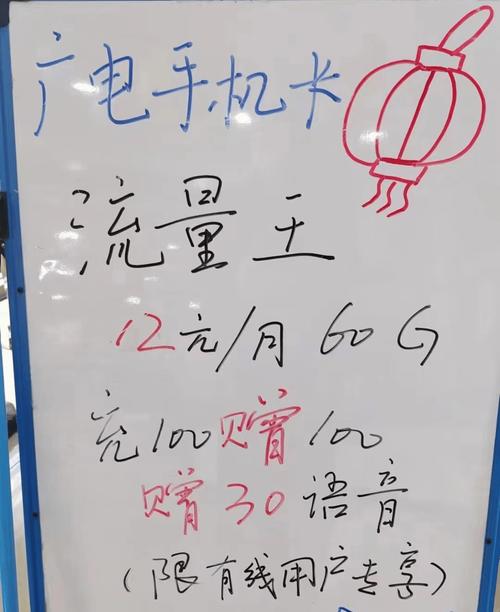 广电手机卡
流量王
12元/月 60G
充100赠100
赠30语音
(限有线用户专享)